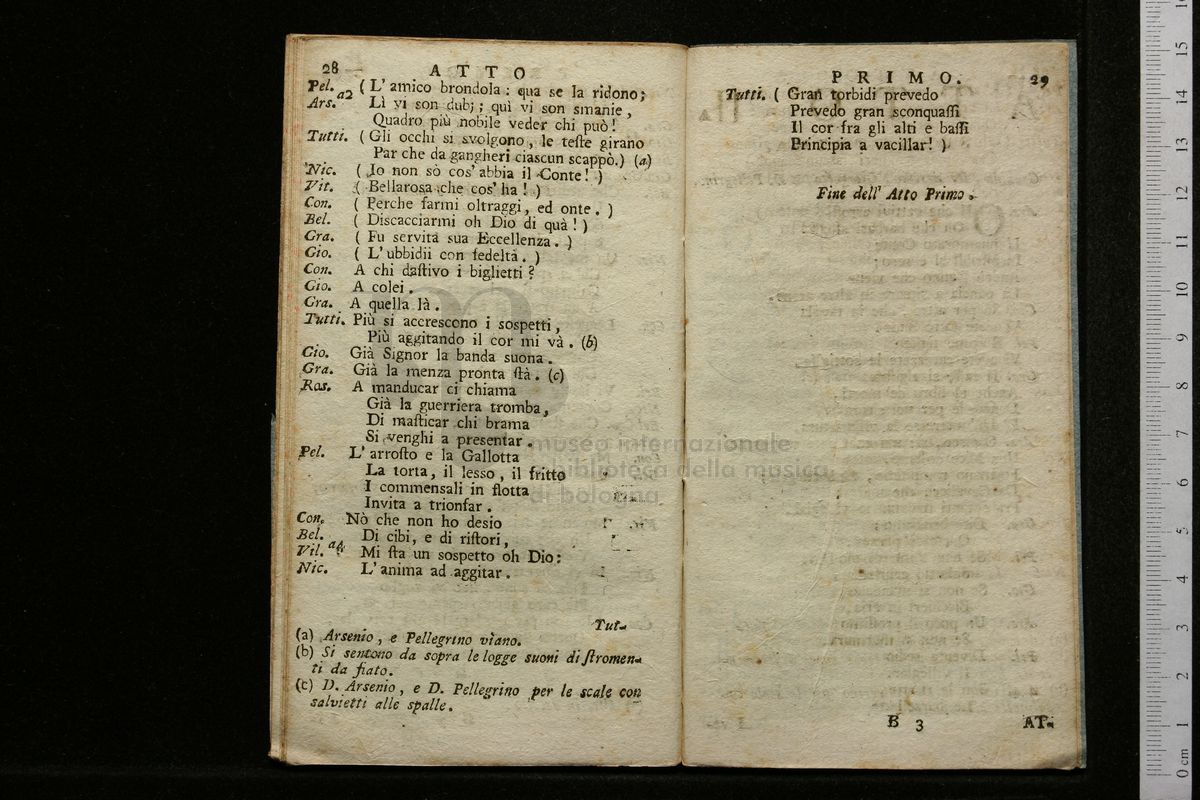 28
ATTO
Pel. a2 ( L' amico brondola : qua se la ridono ;
Ars. Lì vi son dubj ; quì vi son smanie ,
Quadro più nobile veder chi può !
Tutti. ( Gli occhi si svolgono , le teſte girano
Par che da gangheri ciascun scappò. ) (a)
Nic. ( Io non sò cos' abbia il Conte ! )
Vit. ( Bellarosa che cos' ha ! )
Con. ( Perche farmi oltraggi, ed onte . )
Bel. ( Discacciarmi oh Dio di quà ! )
Gra. ( Fu servita sua Eccellenza . )
Gio. ( L' ubbidii con fedeltà . )
Con. A chi daſtivo i biglietti ?
Gio. A colei .
Gra. A quella là .
Tutti. Più si accrescono i sospetti ,
Più aggitando il cor mi và . (b)
Gio. Già Signor la banda suona .
Gra. Già la menza pronta ſtà . (c)
Ras. A manducar ci chiama
Già la guerriera tromba ,
Di maſticar chi brama
Si venghi a presentar .
Pel. L' arroſto e la Gallotta
La torta , il lesso , il fritto
I commensali in flotta
Invita a trionfar .
Con. Nò che non ho desio
Bel. Di cibi, e di riſtori ,
Vil. a4 Mi ſta un sospetto oh Dio :
Nic. L' anima ad aggitar .
Tut-
(a) Arsenio , e Pellegrino viano.
(b) Si sentono da sopra le logge suoni di ſtromen-
ti da fiato.
(c) D. Arsenio, e D. Pellegrino per le scale con
salvietti alle spalle .
PRIMO.
29
Tutti. ( Gran torbidi prevedo
Prevedo gran sconquaſſi
Il cor fra gli alti e baſſi
Principia a vacillar ! )
Fine dell' Atto Primo .
B 3
AT-
museo internazionale
biblioteca della musica
di bologna
0 cm 1 2 3 4 5 6 7 8 9 10 11 12 13 14 15